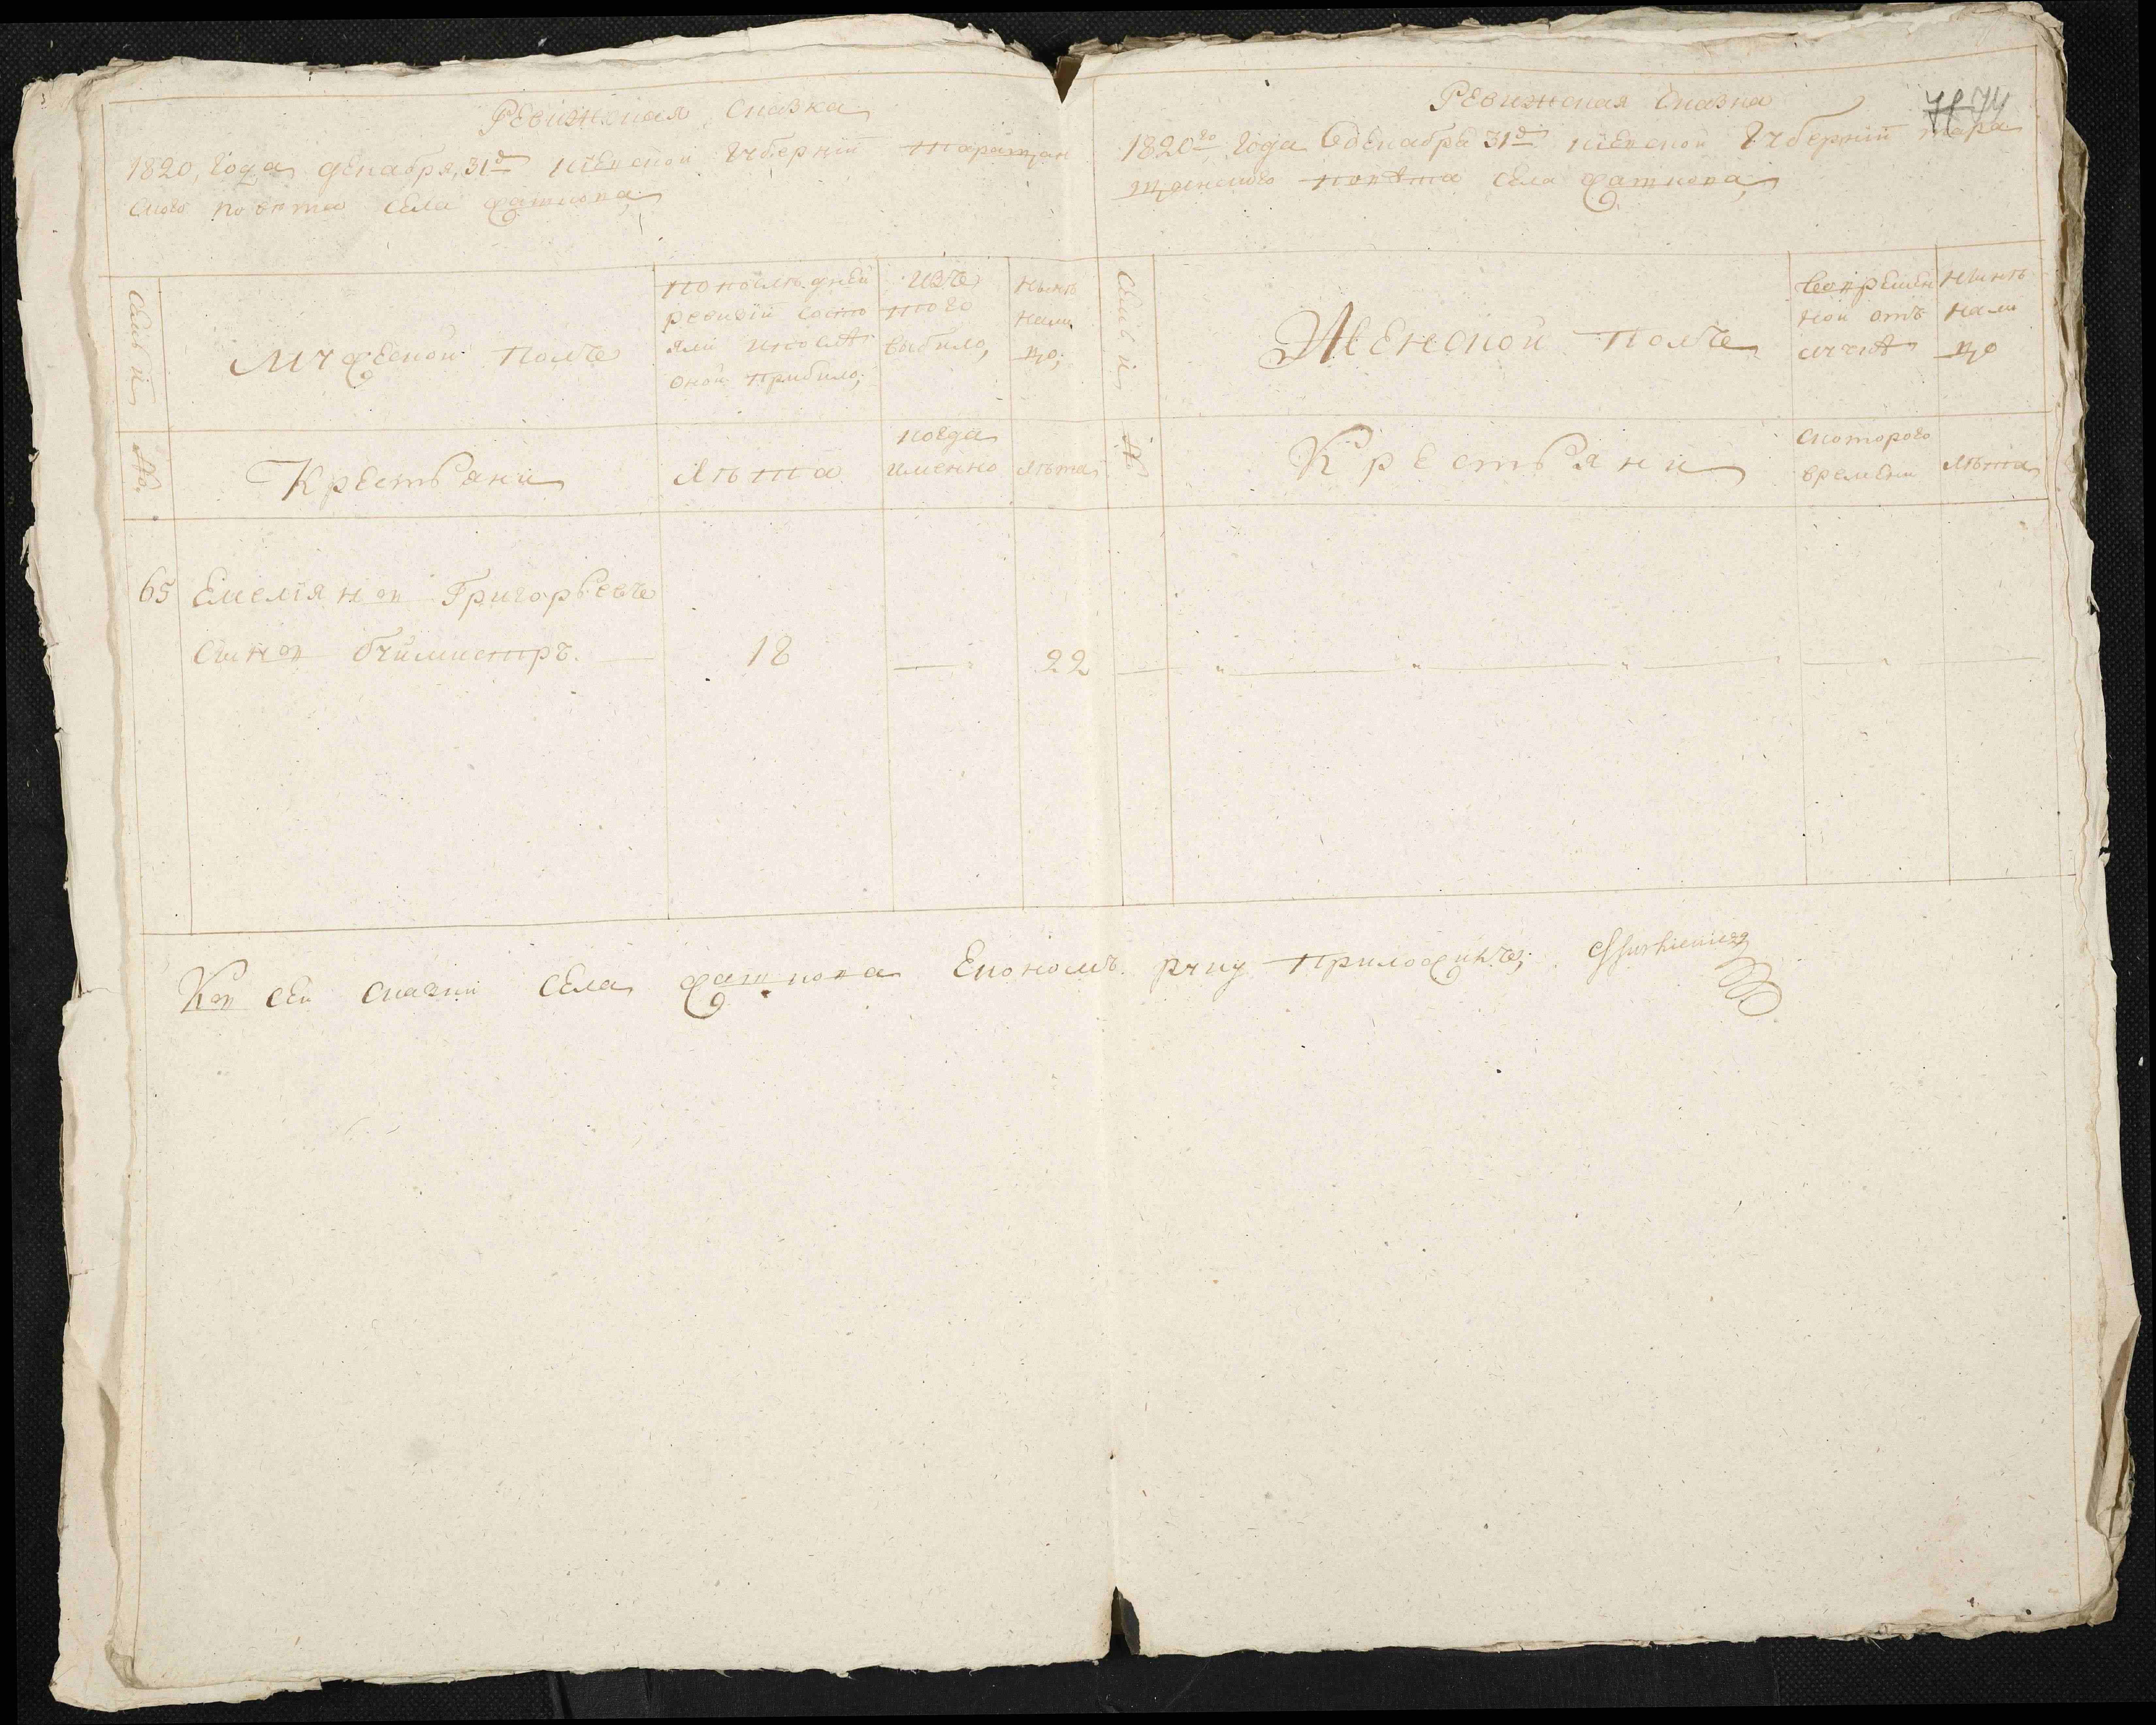 Ревижская Сказка
1820, Года декабря, 31д Кіевской Губерніи Таращан
ского повѣта села Жаткова,
Семьи
Мужеской полъ
по послѣдней
ревизіи состо
яли и послѣ
оной прибило,
изъ
того
выбило,
нынѣ
нали
цо,
№
Крестьяни
лѣта
когда
именно
лѣта
65 Емеліянъ Григорьевъ
синъ Буймистръ. — 18 — 22
Ревижская Сказка
74
1820го Года Декабря 31д Кіевской Губерніи тара
щанского повѣта села Жаткова,
Семьи
Женской полъ
во времен
ной от
лучкѣ
нинѣ
нали
цо
№
Крестьяни
с которого
времени
лѣта
Къ сей сказки села Жаткова Економъ руку приложилъ,